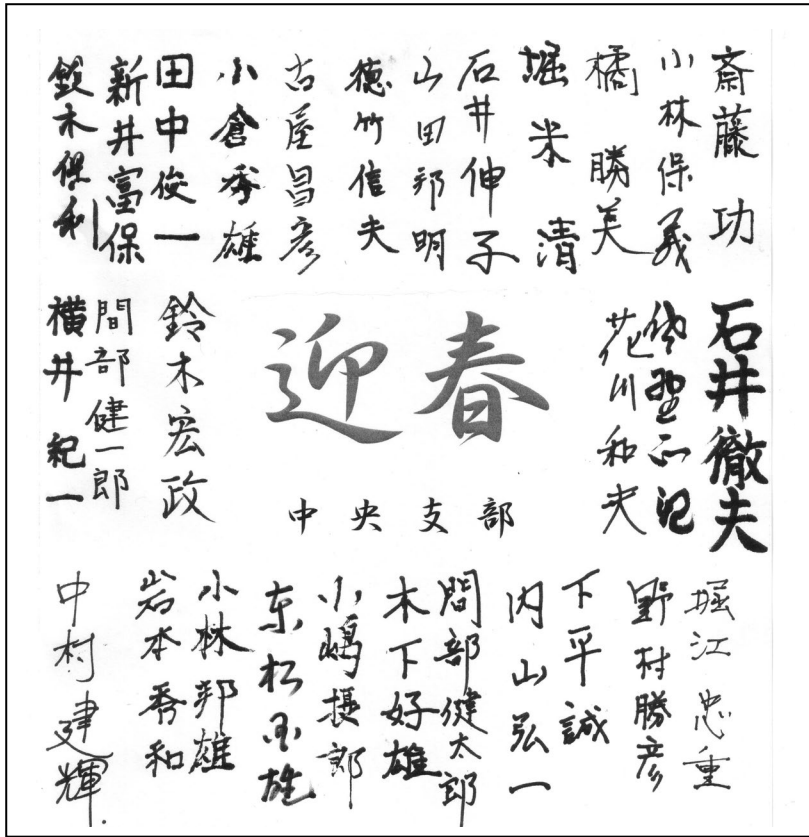 斎藤 功
小林保義
橘 勝美
堀米 清
石井伸子
山田邦明
徳竹信夫
古屋昌彦
小倉秀雄
田中俊一
新井富保
鈴木保利
石井徹夫
花川和夫
迎春
中央支部
鈴木宏政
間部健一郎
横井紀一
堀江忠重
野村勝彦
下平誠
内山弘一
間部健太郎
木下好雄
小嶋 郎
小林邦雄
岩本秀和
中村建輝